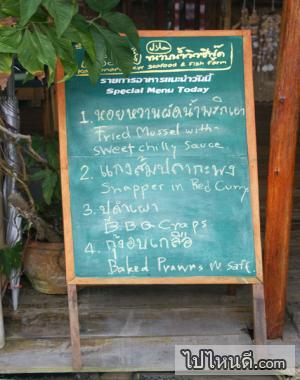 حلال
ขนาบน้ำวิวซีฟู้ด
View Seafood & Fish Farm
รายการอาหารแนะนำวันนี้
Special Menu Today
1. หอยหวานผัดน้ำพริกเผา
Fried Mussel with
sweet chilly sauce
2. แกงส้มปลากะพง
Snapper in Red Curry
3. ปูดำเผา
BBQ Craps
4. กุ้งอบเกลือ
Baked Prawns w salt.
ไปไหนดี.com